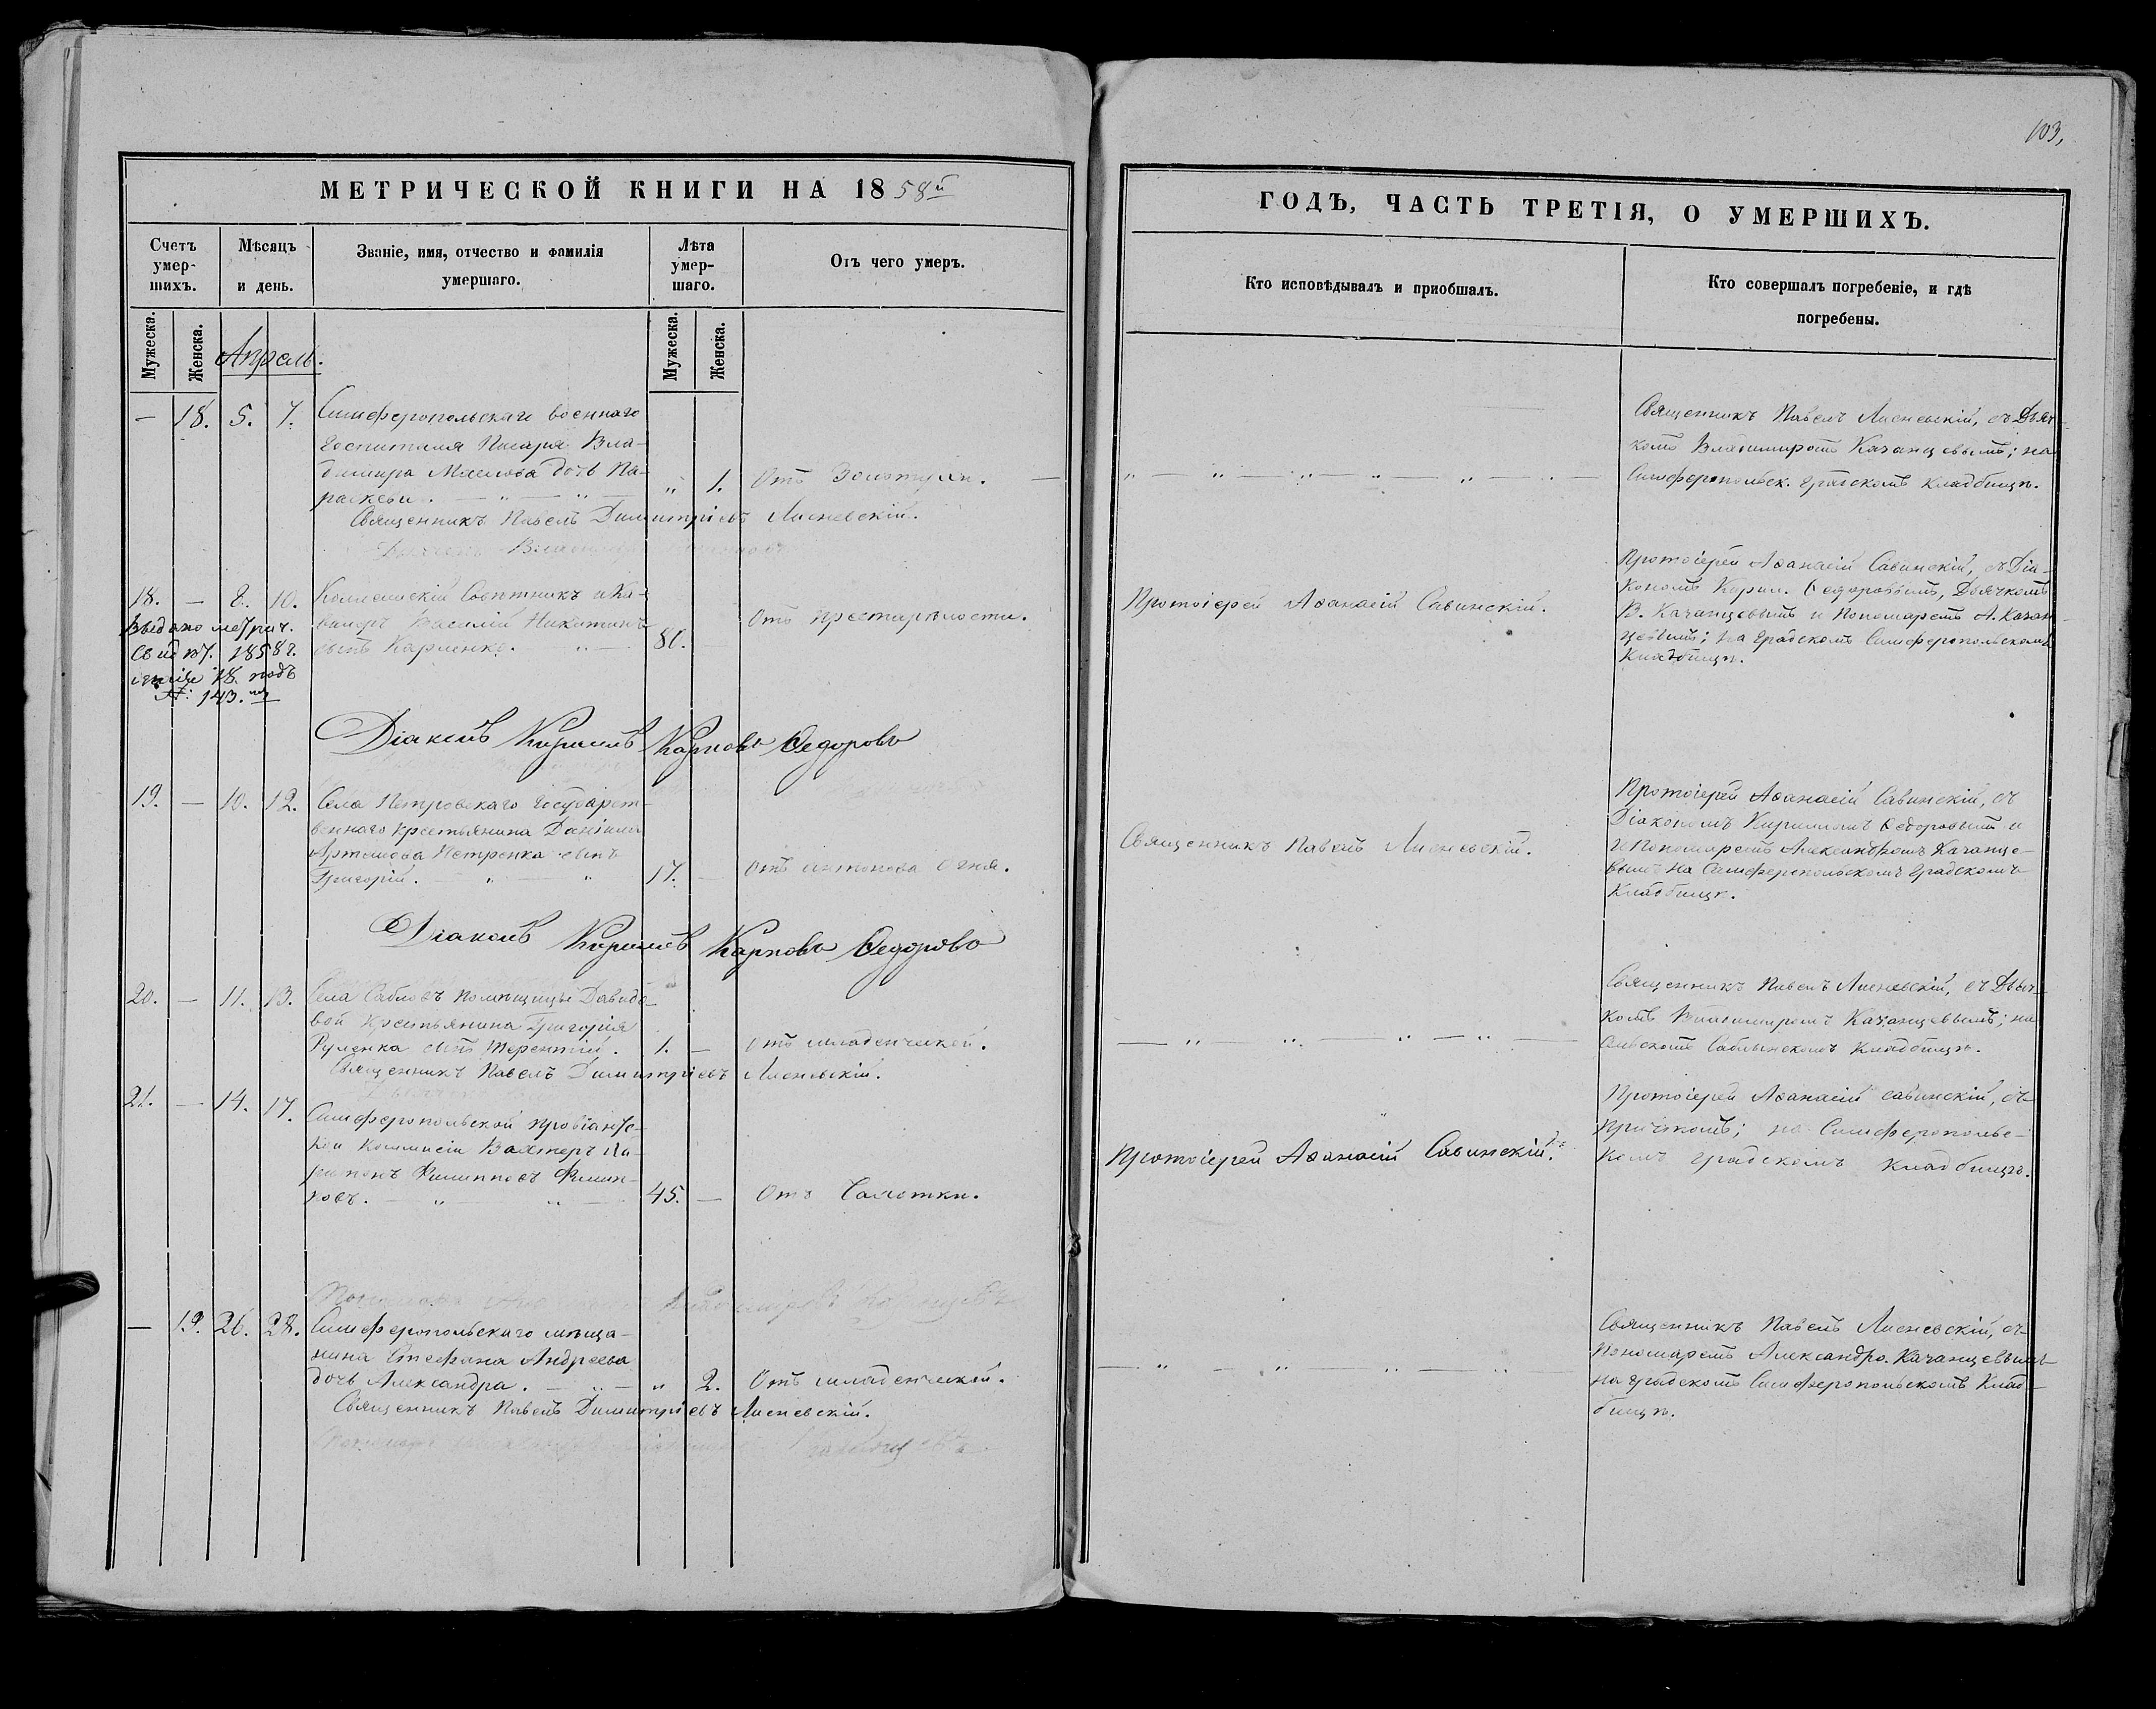 103,
МЕТРИЧЕСКОЙ КНИГИ НА 1858й
Счетъ умер-шихъ.
Мѣсяцъ и день.
Званіе, имя, отчество и фамилія умершаго.
Лѣта умер-шаго.
Отъ чего умеръ.
Мужеска.
Женска.
Мужеска.
Женска.
Апрель.
— 18. 5. 7. Симферопольскаго военнаго
госпиталя Писаря Вла-
димира Маслова дочь Па-
раскева. " 1. Отъ Золотухи.
Священникъ Павелъ Димитріевъ Лисневскій.
18. — 8. 10. Коллежскій Совѣтникъ и Ка-
валеръ Василій Никитинъ
сынъ Карпенко. 80. Отъ престарѣлости.
Выдано метрич.
свид 1858 г.
18. подъ
№: 143.
Діаконъ Кириллъ Карповъ Ѳедоровъ
19. — 10. 12. Села Петровскаго государст-
веннаго крестьянина Даніила
Артемова Петренка сынъ
Григорій. 17. — Отъ антонова огня.
Діаконъ Кириллъ Карповъ Ѳедоровъ
20. — 11. 13. Села Сабловъ помѣщицы Давыдо-
вой крестьянина Григорія
Руденка сынъ Терентій. 1. — Отъ младенческой.
Священникъ Павелъ Димитріевъ Лисневскій.
21. — 14. 17. Симферопольской провіантс-
кой Коммисіи Вахтеръ Ла-
ріонъ Филипповъ Филип-
повъ. 45. — Отъ Чахотки.
— 19. 26. 28. Симферопольскаго мѣща-
нина Стефана Андреева
дочь Александра. " 2. Отъ младенческой.
Священникъ Павелъ Димитріевъ Лисневскій.
ГОДЪ, ЧАСТЬ ТРЕТІЯ, О УМЕРШИХЪ.
Кто исповѣдывалъ и пріобщалъ.
Кто совершалъ погребеніе, и гдѣ погребены.
Священникъ Павелъ Лисневскій, съ Дьяч-
комъ Владимиромъ Качанцевымъ; на
Симферопольск. градскомъ кладбищѣ.
Протоіерей Аѳанасій Савинскій.
Протоіерей Аѳанасій Савинскій, съ Діа-
кономъ Кирил. Ѳедоровымъ, Дьячкомъ
В. Качанцевымъ и Пономаремъ А. Качан-
цевымъ; на градскомъ Симферопольскомъ
Кладбищѣ.
Священникъ Павелъ Лисневскій.
Протоіерей Аѳанасій Савинскій, съ
Діакономъ Кирилломъ Ѳедоровымъ и
и Пономаремъ Александромъ Качанце-
вымъ на Симферопольскомъ градскомъ
Кладбищѣ.
Священникъ Павелъ Лисневскій, съ Дьяч-
комъ Владимиромъ Качанцевымъ; на
сельскомъ Саблынскомъ Кладбищѣ.
Протоіерей Аѳанасій Савинскій.
Протоіерей Аѳанасій Савинскій, съ
Причтомъ; на Симферопольс-
комъ градскомъ кладбищѣ.
Священникъ Павелъ Лисневскій, съ
Пономаремъ Александро. Качанцевымъ
на градскомъ Симферопольскомъ Клад-
бищѣ.